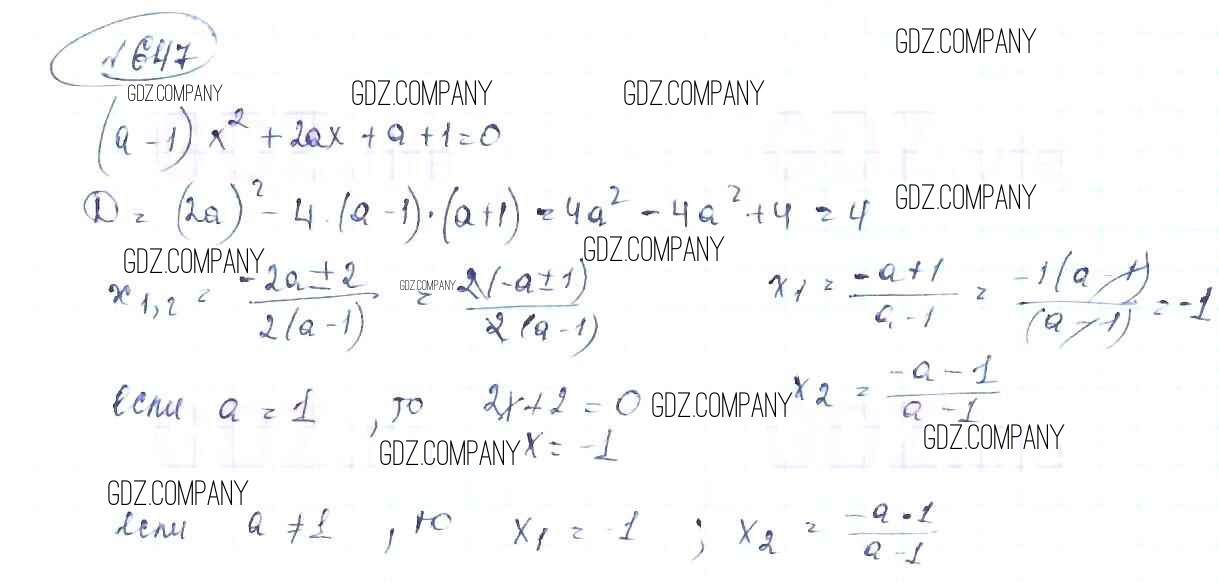 № 647
GDZ.COMPANY
GDZ.COMPANY GDZ.COMPANY GDZ.COMPANY
(a - 1) x² + 2ax + a + 1 = 0
D = (2a)² - 4 · (a - 1) · (a + 1) = 4a² - 4a² + 4 = 4
GDZ.COMPANY
GDZ.COMPANY GDZ.COMPANY GDZ.COMPANY
x1,2 = (-2a ± 2)/(2(a - 1)) = (2(-a ± 1))/(2(a - 1)) x1 = (-a + 1)/(a - 1) = (-1(a - 1))/((a - 1)) = -1
Если a = 1, то 2x + 2 = 0 GDZ.COMPANY x2 = (-a - 1)/(a - 1)
GDZ.COMPANY x = -1 GDZ.COMPANY
GDZ.COMPANY
Если a ≠ 1, то x1 = -1 ; x2 = (-a - 1)/(a - 1)